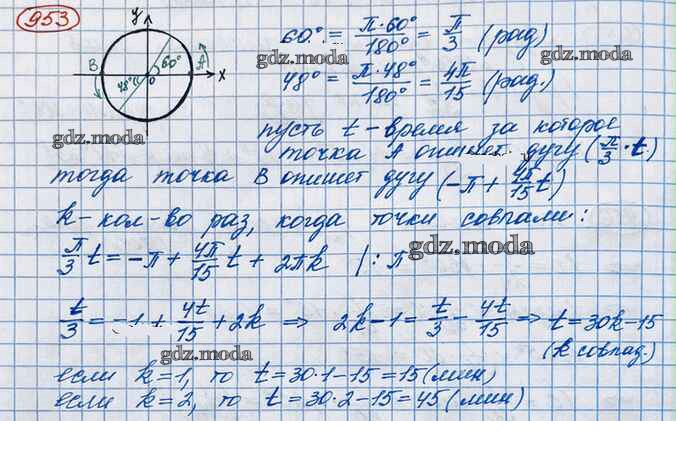 953
y
B
60°
A
x
48°
0
60° = π·60°/180° = π/3 (рад)
gdz.moda
48° = π·48°/180° = 4π/15 (рад.)
gdz.moda
gdz.moda
пусть t - время за которое
точка A опишет дугу (π/3 · t)
тогда точка B опишет дугу (-π + 4π/15 t)
k - кол-во раз, когда точки совпали:
π/3 t = -π + 4π/15 t + 2πk |:π
gdz.moda
gdz.moda
t/3 = -1 + 4t/15 + 2k ⇒ 2k-1 = t/3 - 4t/15 ⇒ t = 30k-15
gdz.moda
(k совпад.)
если k=1, то t = 30·1-15 = 15 (мин)
если k=2, то t = 30·2-15 = 45 (мин)